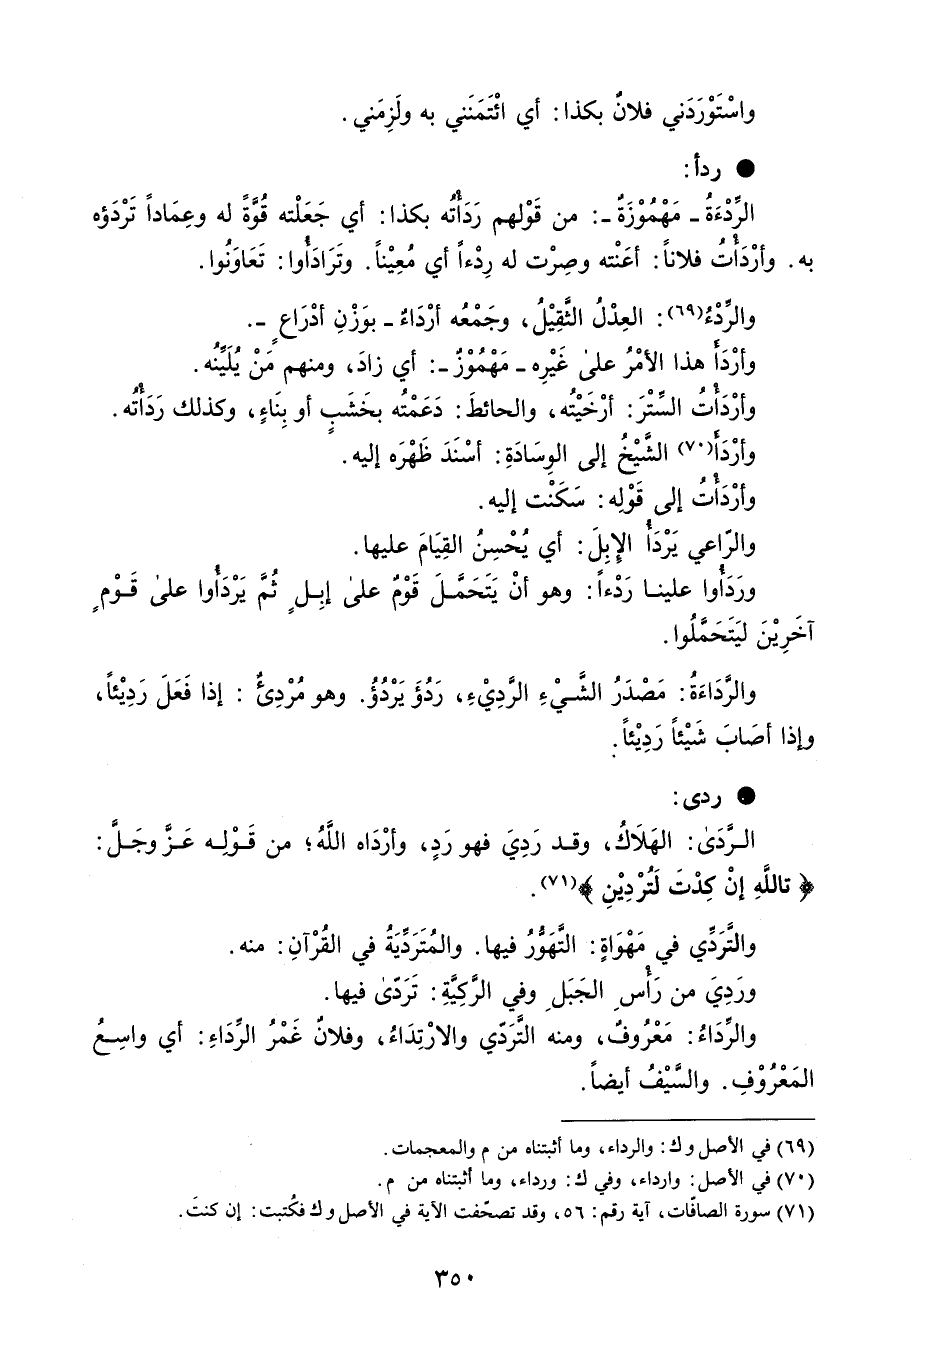 واسْتَوْرَدَني فلانٌ بكذا: أي ائْتَمَنَني به ولَزِمَني.
● ردأ:
الرِّدْءَةُ ـ مَهْمُوْزَةٌ ـ: من قَوْلهم رَدَأْتُه بكذا: أي جَعَلْته قُوَّةً له وعِمَاداً تَرْدَؤه
به. وأرْدَأْتُ فلاناً: أعَنْته وصِرْت له رِدْءاً أي مُعِيْناً. وتَرَادَأُوا: تَعَاوَنُوا.
والرِّدْءُ(٦٩): العِدْلُ الثَّقِيْلُ، وجَمْعُه أرْدَاءٌ ـ بوَزْنِ أدْرَاعٍ ـ.
وأرْدَأَ هذا الأمْرُ علىٰ غَيْرِه ـ مَهْمُوْزٌ ـ: أي زادَ، ومنهم مَنْ يُلَيِّنُه.
وأرْدَأْتُ السِّتْرَ: أرْخَيْتُه، والحائطَ: دَعَمْتُه بخَشَبٍ أو بِنَاءٍ، وكذلك رَدَأْتُه.
وأرْدَأَ(٧٠) الشَّيْخُ إلى الوِسَادَةِ: أسْنَدَ ظَهْرَه إليه.
وأرْدَأْتُ إلى قَوْلِه: سَكَنْت إليه.
والرّاعي يَرْدَأُ الإِبِلَ: أي يُحْسِنُ القِيَامَ عليها.
ورَدَأُوا علينا رَدْءاً: وهو أنْ يَتَحَمَّلَ قَوْمٌ علىٰ إبِلٍ ثُمَّ يَرْدَأُوا علىٰ قَوْمٍ
آخَرِيْنَ لِيَتَحَمَّلُوا.
والرَّدَاءَةُ: مَصْدَرُ الشَّيْءِ الرَّدِيْءِ، رَدُؤَ يَرْدُؤُ. وهو مُرْدِئٌ: إذا فَعَلَ رَدِيْئاً،
وإذا أصَابَ شَيْئاً رَدِيْئاً.
● ردى:
الرَّدَىٰ: الهَلَاكُ، وقد رَدِيَ فهو رَدٍ، وأرْدَاه اللَّهُ؛ من قَوْلِه عَزَّ وجَلَّ:
﴿ تاللَّهِ إنْ كِدْتَ لَتُرْدِيْنِ ﴾(٧١).
والتَّرَدِّي في مَهْوَاةٍ: التَّهَوُّرُ فيها. والمُتَرَدِّيَةُ في القُرْآنِ: منه.
ورَدِيَ من رَأْسِ الجَبَلِ وفي الرَّكِيَّةِ: تَرَدّىٰ فيها.
والرِّدَاءُ: مَعْرُوفٌ، ومنه التَّرَدّي والارْتِدَاءُ، وفلانٌ غَمْرُ الرِّدَاءِ: أي واسِعُ
المَعْرُوْفِ. والسَّيْفُ أيضاً.
(٦٩) في الأصل و ك: والرداء، وما أثبتناه من م والمعجمات.
(٧٠) في الأصل: وارداء، وفي ك: ورداء، وما أثبتناه من م.
(٧١) سورة الصافّات، آية رقم: ٥٦، وقد تصحّفت الآية في الأصل و ك فكُتبت: إن كنتَ.
٣٥٠